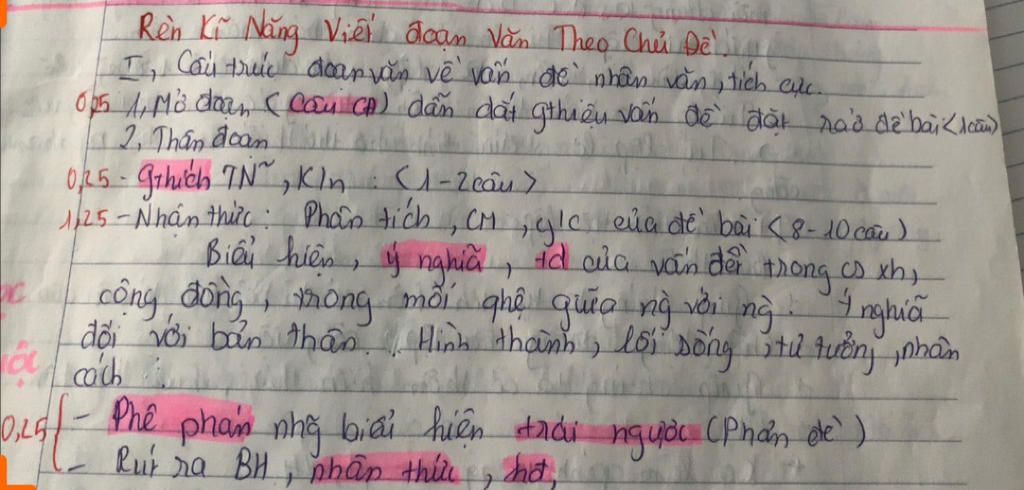 Rèn Kĩ Năng Viết đoạn Văn Theo Chủ Đề.
I, Cấu trúc đoạn văn về vấn đề nhân văn, tích cực.
0,25 1, Mở đoạn (Câu CĐ) dẫn dắt gthiệu vấn đề đặt ra ở đề bài <1câu>
2, Thân đoạn
0,25 - Gthích TN~, K/n : <1-2câu>
1,25 - Nhận thức: Phân tích, CM, y/c của đề bài <8-10 câu>
Biểu hiện, ý nghĩa, td của vấn đề trong cs xh,
cộng đồng, trong mối qhệ giữa ng với ng. Ý nghĩa
đối với bản thân... Hình thành, lối sống, tư tưởng, nhân
cách...
0,25 - Phê phán nhg biểu hiện trái ngược (Phản đề)
- Rút ra BH, nhận thức, hđ,